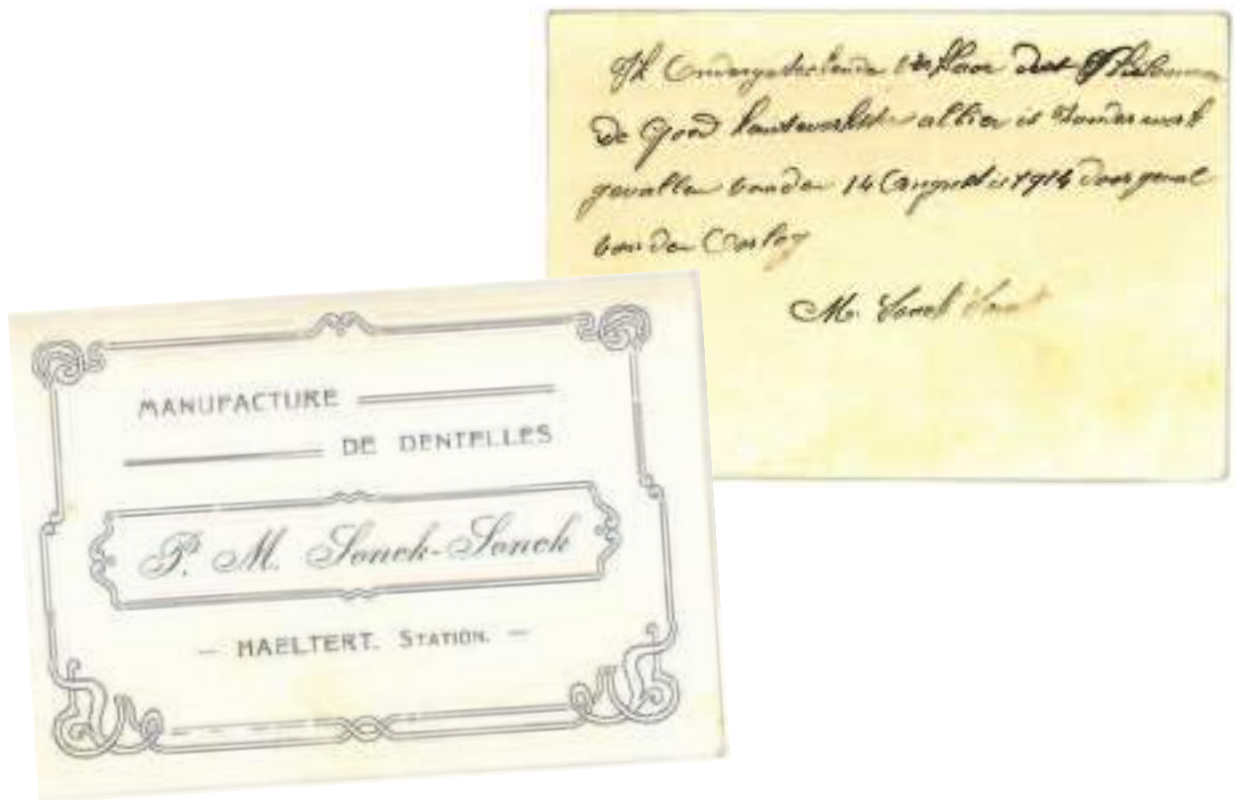 Ik Ondergetekende verklaar dat Philomene
De Goed kantwerkster alhier is zonder werk
gevallen van den 14 Augustus 1914 door geval
van den Oorlog
M. Sonck Sonck
MANUFACTURE
DE DENTELLES
P. M. Sonck-Sonck
— HAELTERT. STATION. —